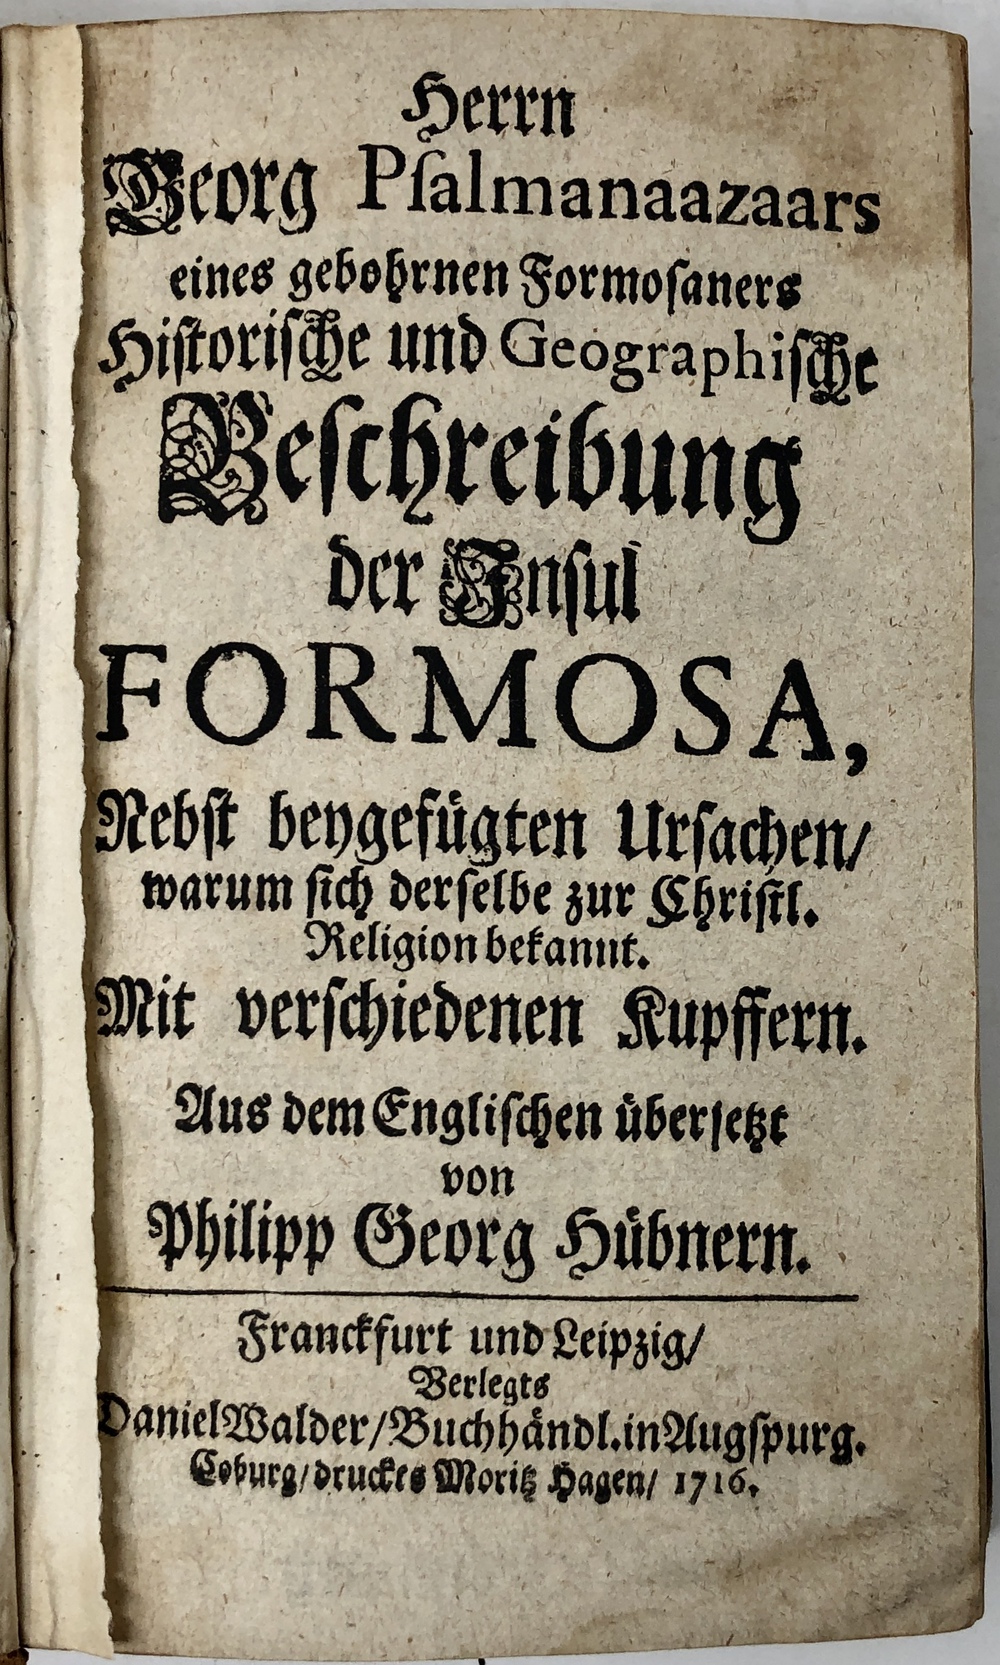 Herrn
Georg Pſalmanaazaars
eines gebohrnen Formoſaners
Hiſtoriſche und Geographiſche
Beſchreibung
der Inſul
FORMOSA,
Nebſt beygefügten Urſachen/
warum ſich derſelbe zur Chriſtl.
Religion bekannt.
Mit verſchiedenen Kupffern.
Aus dem Engliſchen überſetzt
von
Philipp Georg Hübnern.
Franckfurt und Leipzig/
Verlegts
Daniel Walder/Buchhändl. in Augſpurg.
Coburg/druckts Moritz Hagen/ 1716.